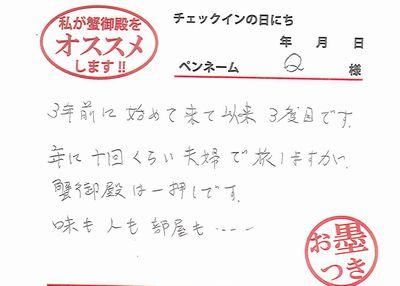 私が蟹御殿を
オススメ
します!!
チェックインの日にち
年 月 日
ペンネーム Q 様
3年前に始めて来て以来3度目です。
年に十回くらい夫婦で旅しますが、
蟹御殿は一押しです。
味も人も部屋も・・・・
お墨
つき